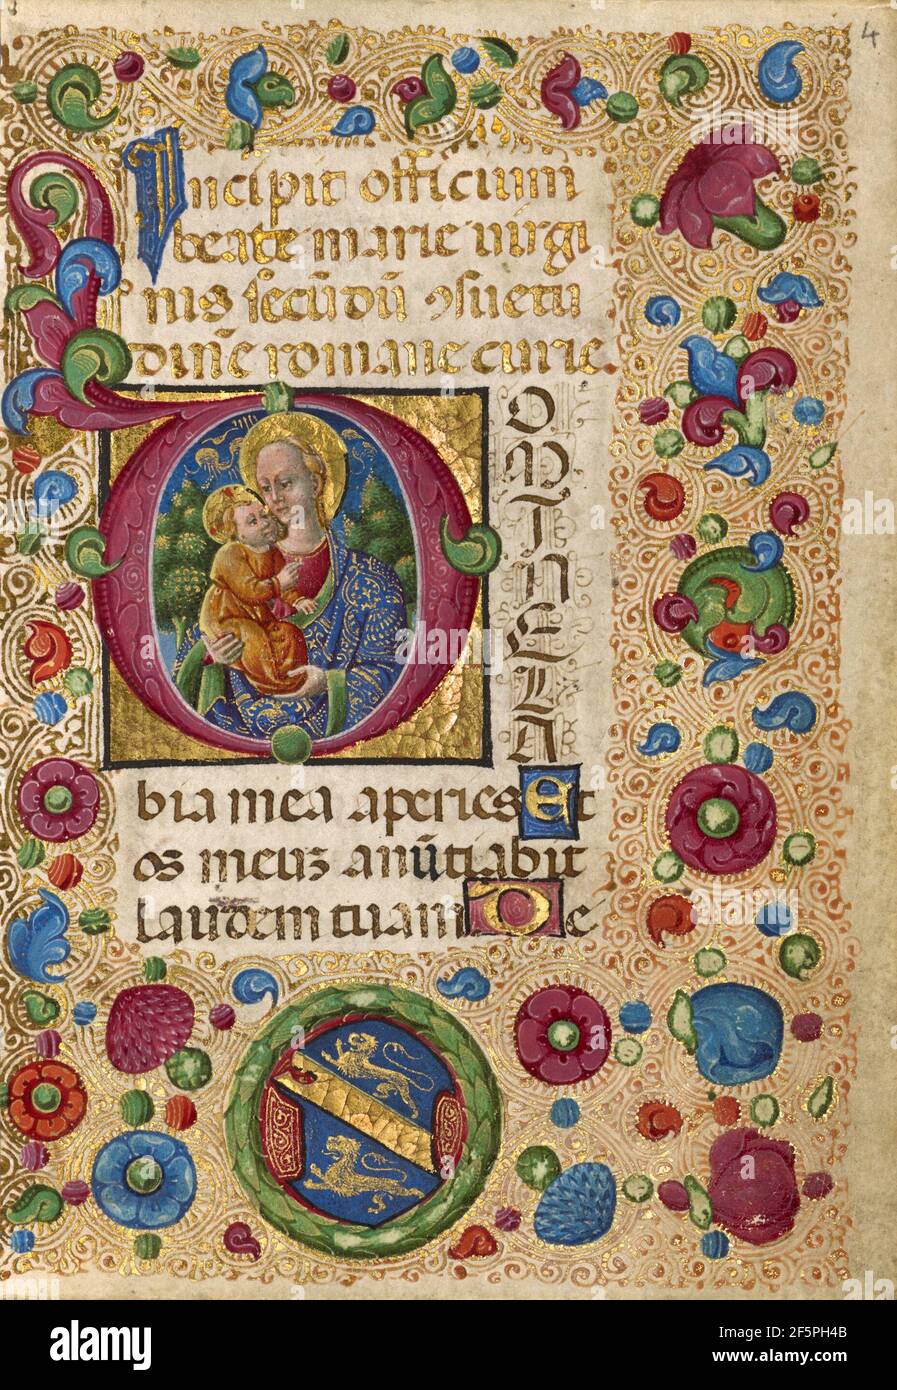 4
Incipit officium
beate marie uirgi
nis secūdū ꝯsuetu
dinē romane curie
DOMINE LA
bia mea aperies Et
os meuȝ anūtiabit
laudem tuam De
alamy
Image ID: 2F5PH4B
www.alamy.com